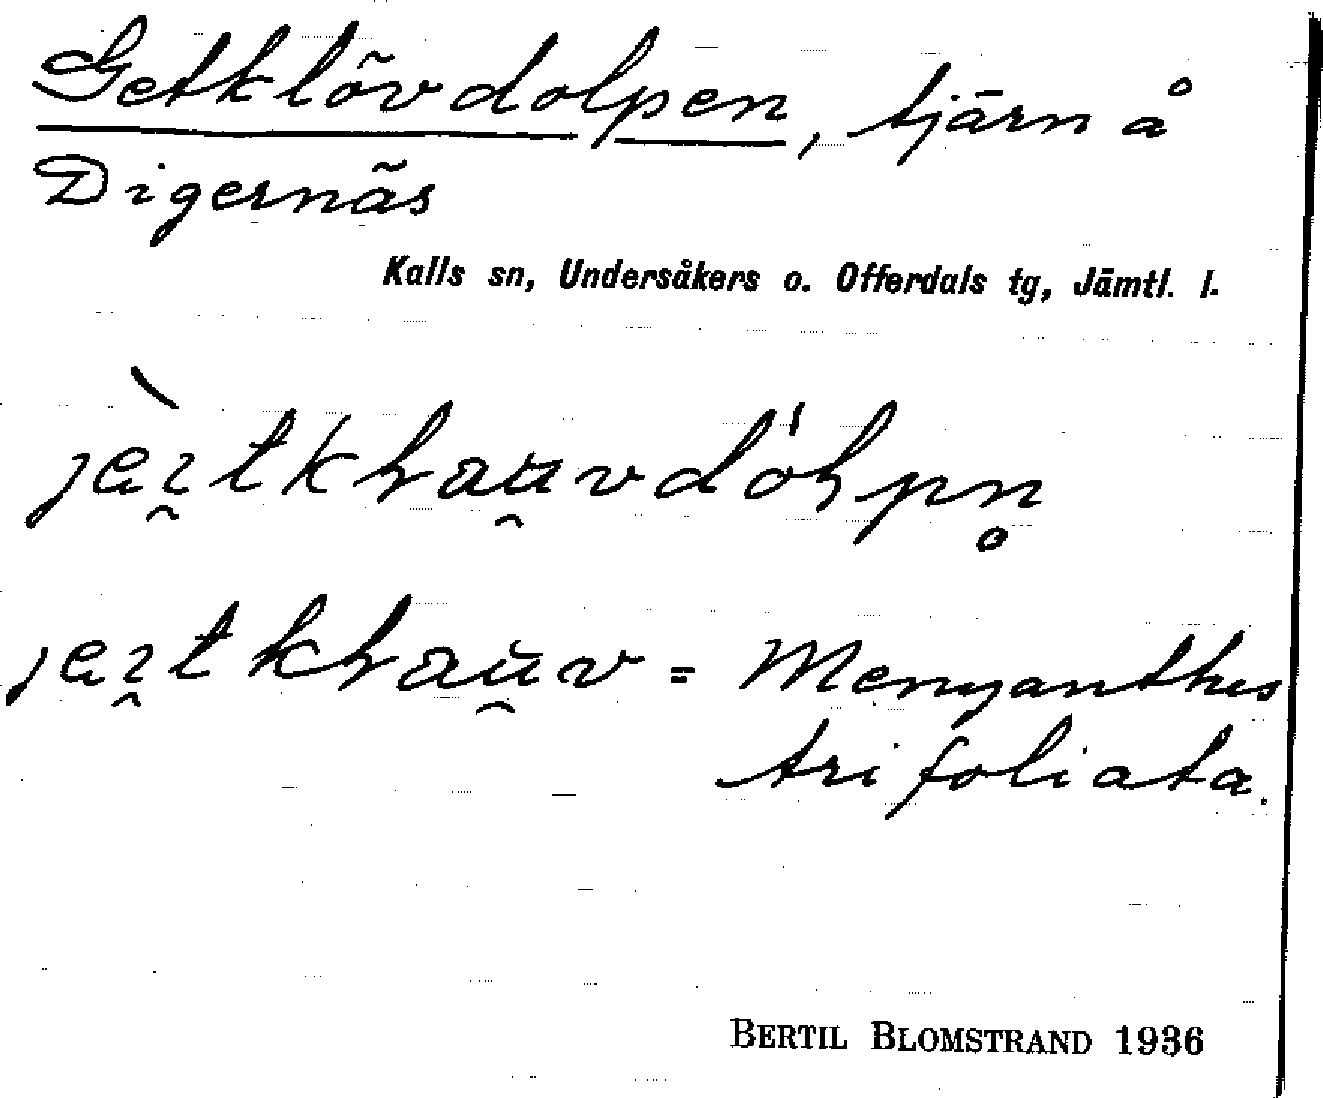 Getklövdolpen, tjärn å
Digernäs
Kalls sn, Undersåkers o. Offerdals tg, Jämtl. l.
= Menyanthes
trifoliata.
BERTIL BLOMSTRAND 1936